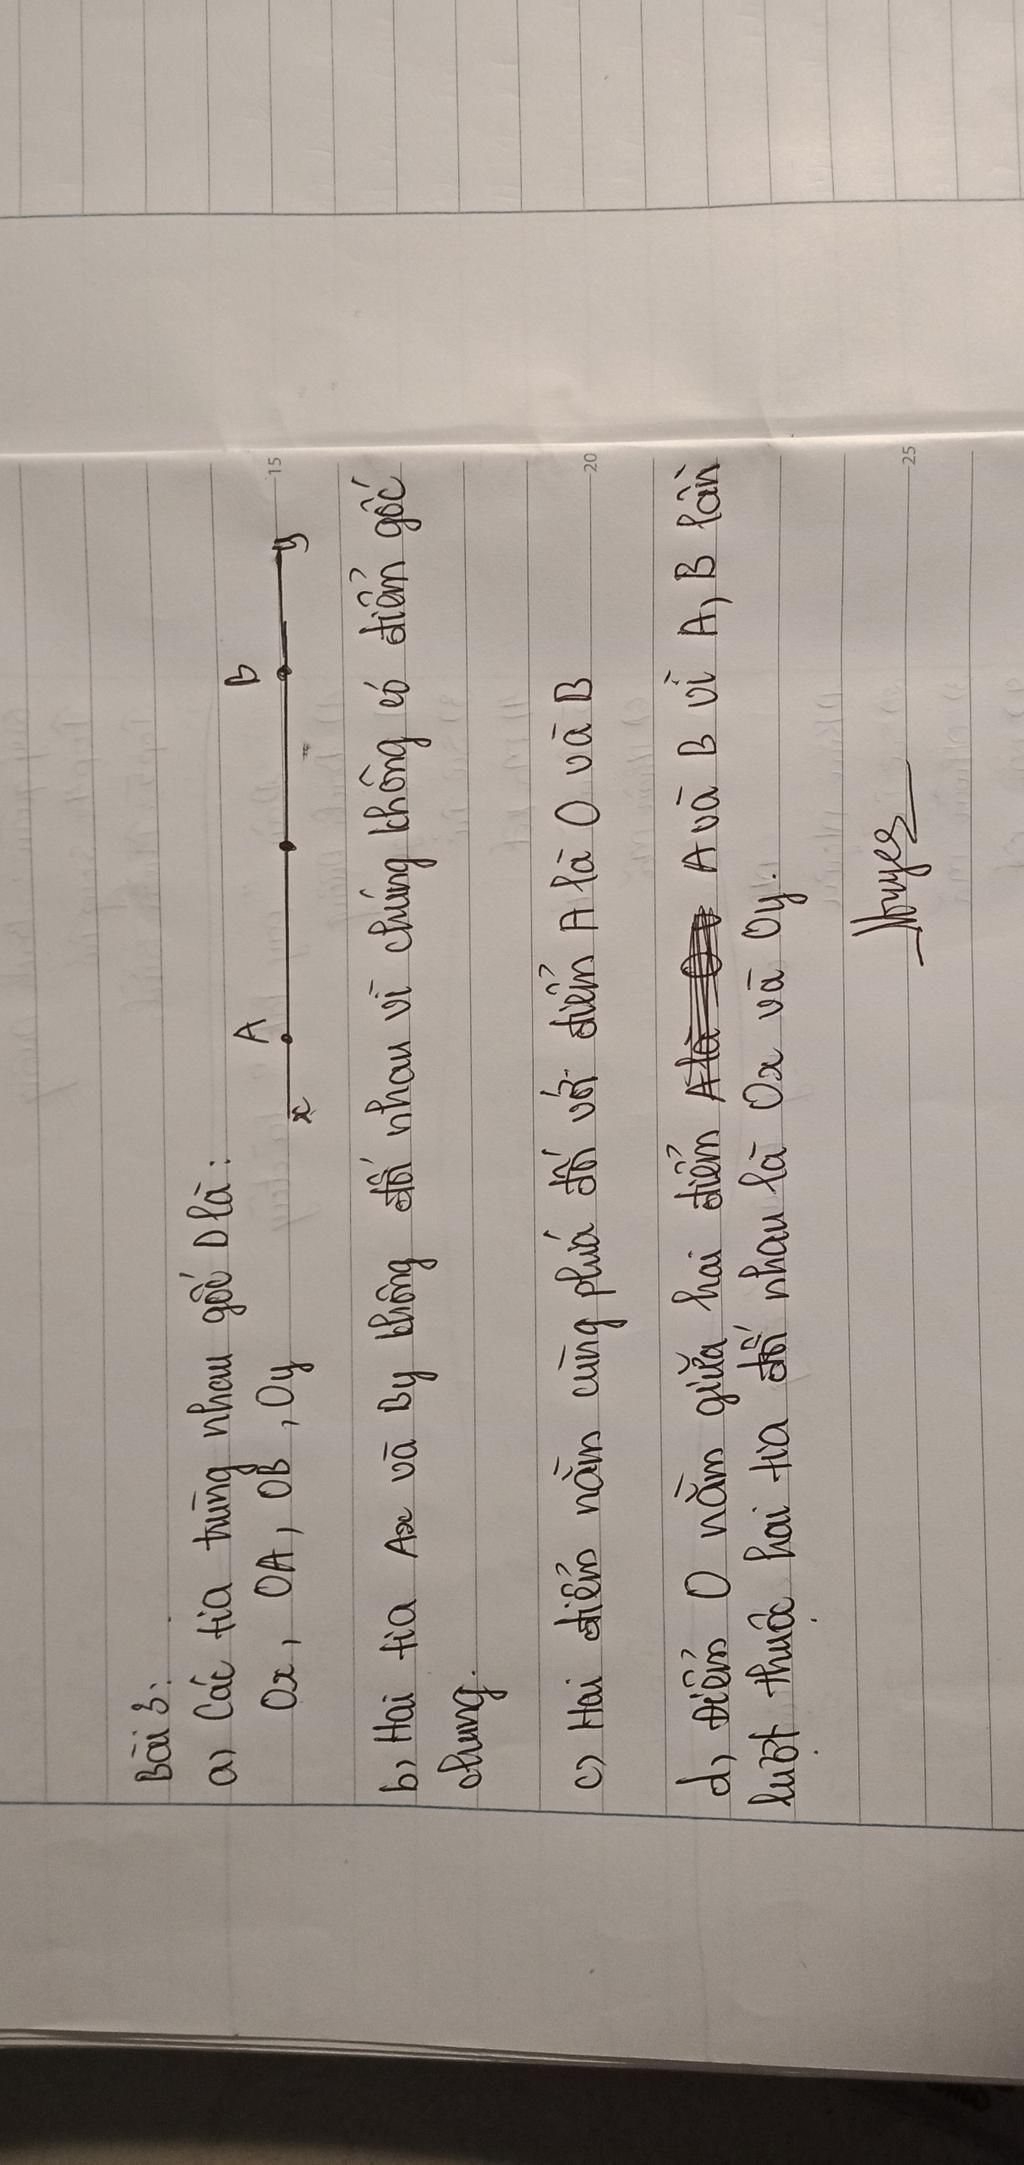 Bài 3:
a, Các tia trùng nhau gốc O là:
Ox, OA, OB, Oy
A B
x y
15
b, Hai tia Ax và By không đối nhau vì chúng không có điểm gốc
chung.
c) Hai điểm nằm cùng phía đối với điểm A là O và B
20
d, Điểm O nằm giữa hai điểm A và B vì A, B lần
lượt thuộc hai tia đối nhau là Ox và Oy.
25